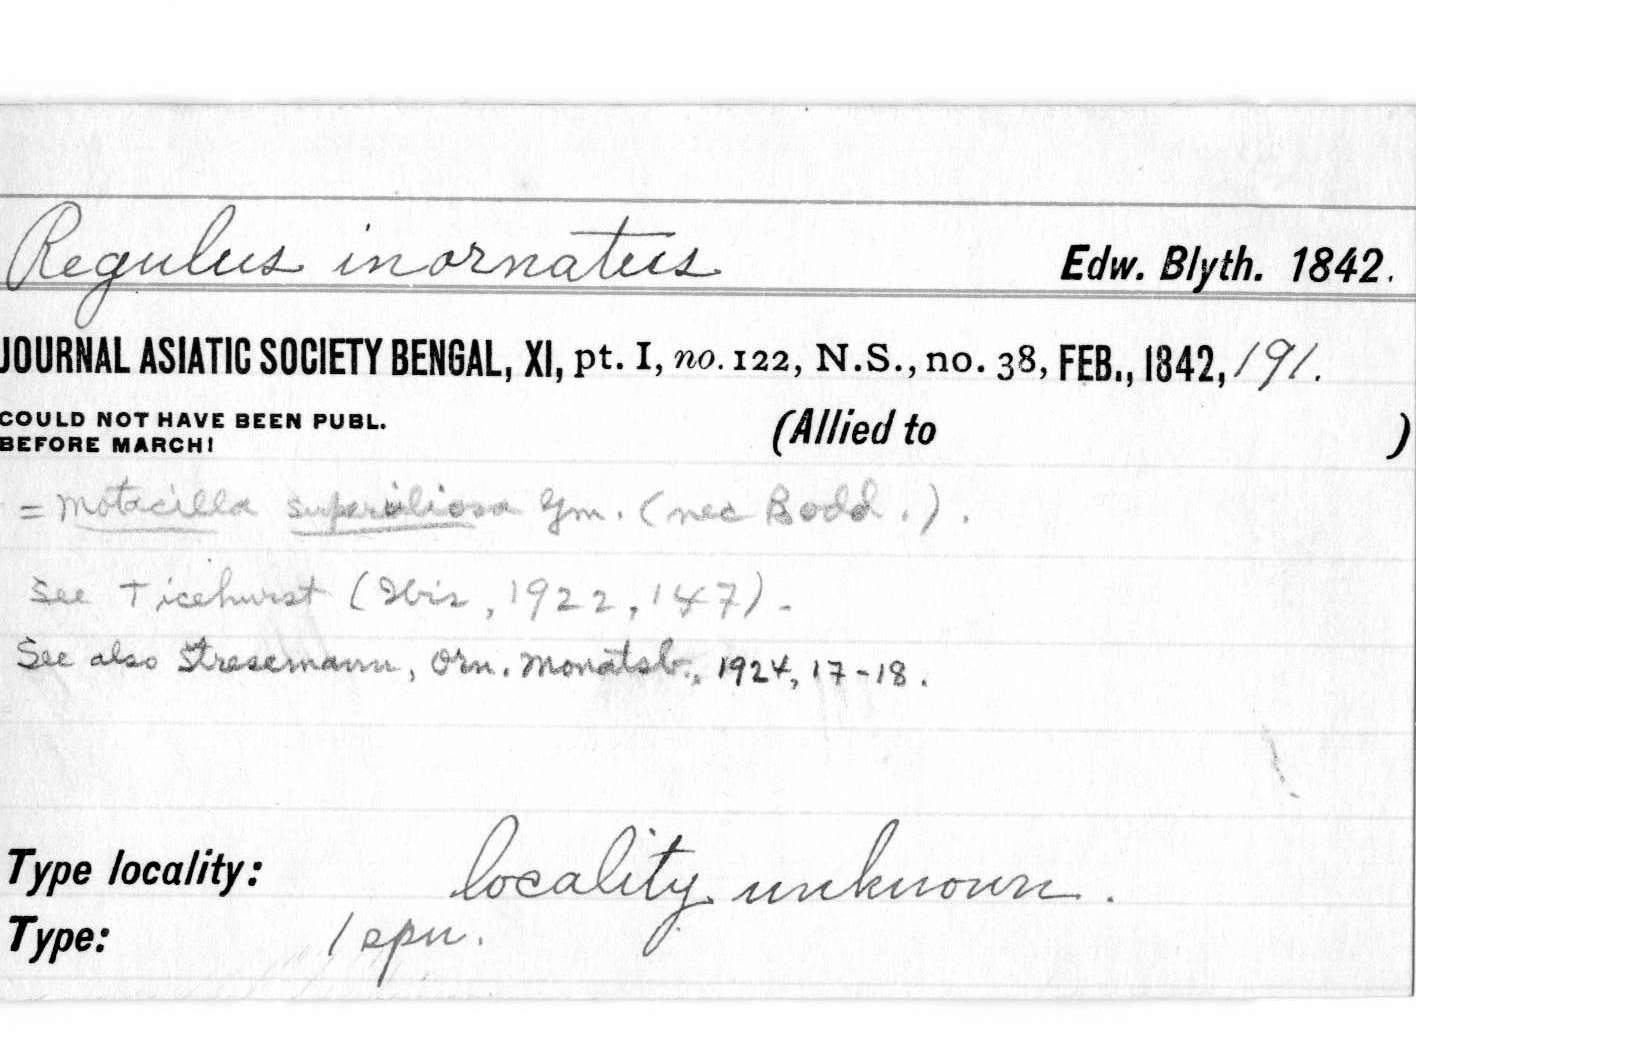 Regulus inornatus Edw. Blyth. 1842.
JOURNAL ASIATIC SOCIETY BENGAL, XI, pt. I, no. 122, N.S., no. 38, FEB., 1842, 191.
COULD NOT HAVE BEEN PUBL.
BEFORE MARCH!
(Allied to )
= Motacilla superciliosa Gm. (nec Bodd.).
See Ticehurst (Ibis, 1922, 147).
See also Stresemann, Orn. Monatsb., 1924, 17-18.
Type locality: locality unknown.
Type: 1 spn.